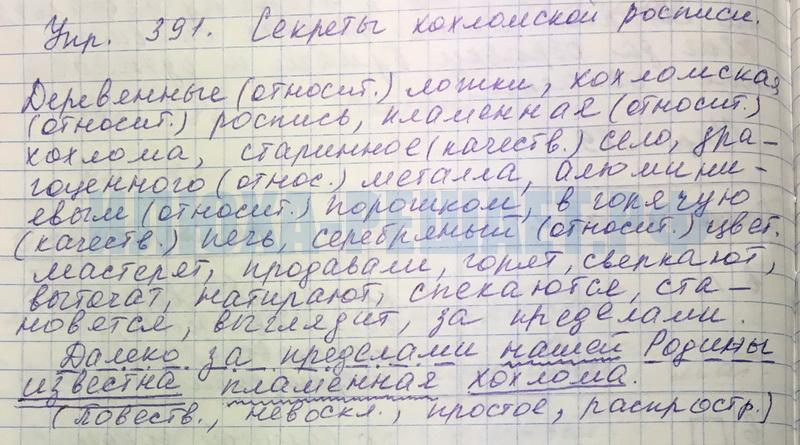 Упр. 391. Секреты хохломской росписи.
Деревенные (относит.) ложки, хохломская
(относит.) роспись, пламенная (относит.)
хохлома, старинное (качеств.) село, дра-
гоценного (относ.) металла, алюмини-
евым (относит.) порошком, в горячую
(качеств.) печь, серебряный (относит.) цвет.
мастерят, продавали, горят, сверкают,
выточат, натирают, спекаются, ста-
новятся, выглядит, за пределами.
Далеко за пределами нашей Родины
известна пламенная хохлома.
(повеств., невоскл., простое, распростр.)